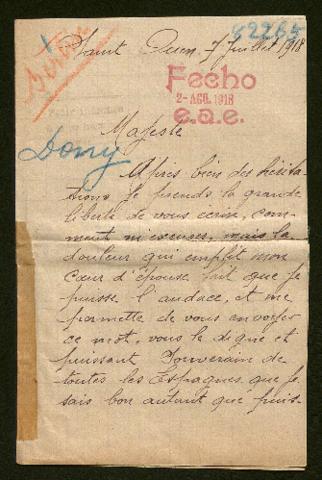 82265
Saint Ouen 7 Juillet 1918
Fecho
2-AGO. 1918
e.a.e.
Majesté
Dony
Après bien des hésita
tions je prends la grande
liberté de vous écrire, com-
ment m'excuser, mais la
douleur qui emplit mon
cœur d'épouse fait que je
puisse l'audace, et me
permette de vous envoyer
ce mot, vous le digne et
puissant Souverain de
toutes les Espagnes que je
sais bon autant que puis-